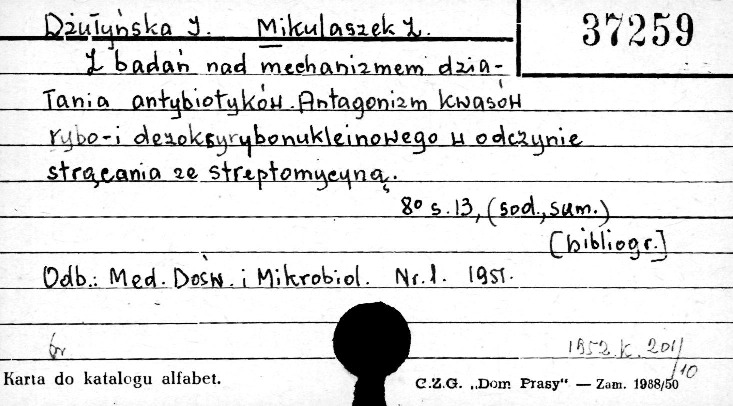 Dżułyńska J. Mikulaszek Z.
37259
Z badań nad mechanizmem dzia-
łania antybiotyków. Antagonizm kwasów
rybo-i dezoksyrybonukleinowego w odczynie
strącania ze streptomycyną.
8° s. 13, (sod., sum.)
[bibliogr.]
Odb.: Med. Dośw. i Mikrobiol. Nr. 1. 1951.
1952. K. 201/10
Karta do katalogu alfabet.
C.Z.G. „Dom Prasy" — Zam. 1988/50